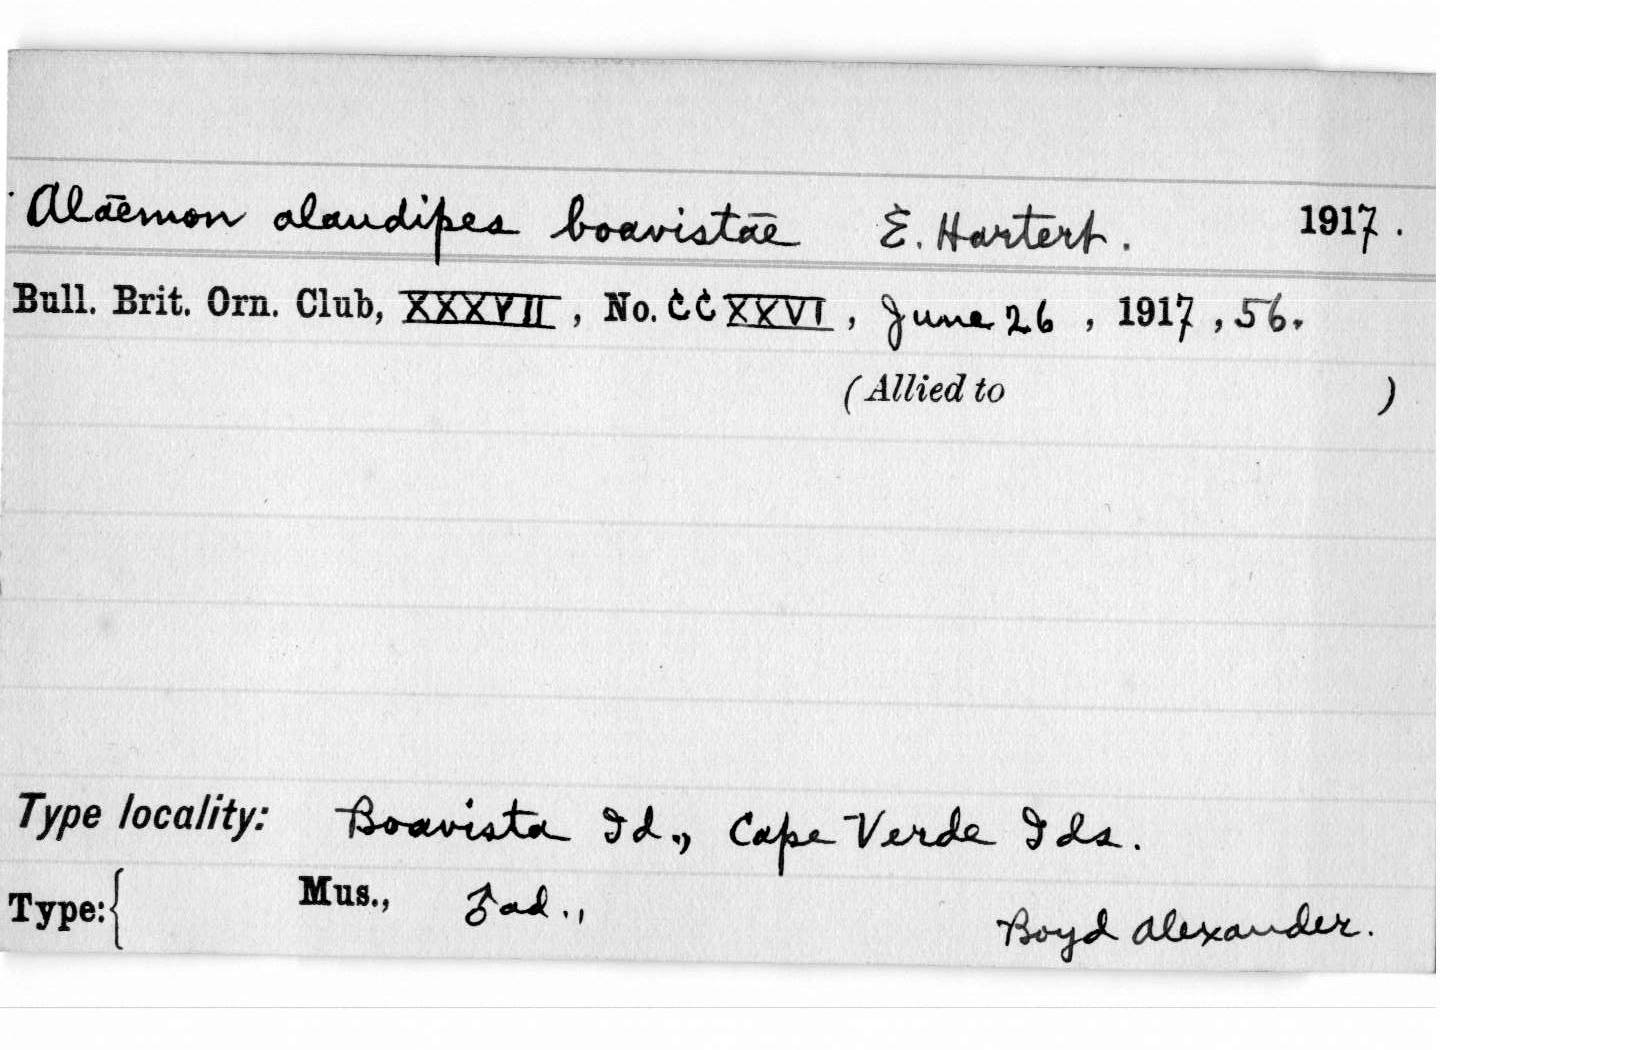 Alāemon alaudipes boavistāe E. Hartert. 1917.
Bull. Brit. Orn. Club, XXXVII, No. CCXXVI, June 26, 1917, 56.
(Allied to )
Type locality: Boavista Id., Cape Verde Ids.
Type:{ Mus., ♂ ad., Boyd Alexander.